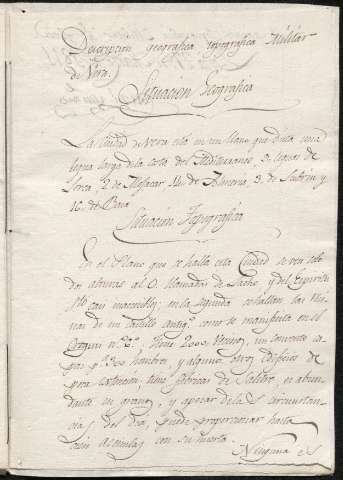 Descripcion geografica topografica Militar
de Vera.
Situacion Geografica
La Ciudad de Vera está en un llano que dista una
legua larga de la costa del Mediterraneo, 9. leguas de
Lorca, 2. de Mojacar, 14. de Almeria, 3. de Lubrin y
16. de Baza
Situacion Topografica
En el Plano que se halla esta Ciudad se ven solo
dos alturas al O. llamadas de y del Espiritu
Sto. casi inaccesible; en la segunda se hallan las Rui-
nas de un Castillo antigo. como se manifiesta en el
Croquis n.º 2.º Tiene 2000 Vecinos, un convento ca-
paz pª. 300 hombres, y algunos otros edificios de
poca extension; tiene fabricas de Salitre, es abun-
dante en granos, y apesar de las circunstan-
cias del dia, puede proporcionar hasta
cien Acemilas con su huerta.
Ninguna es